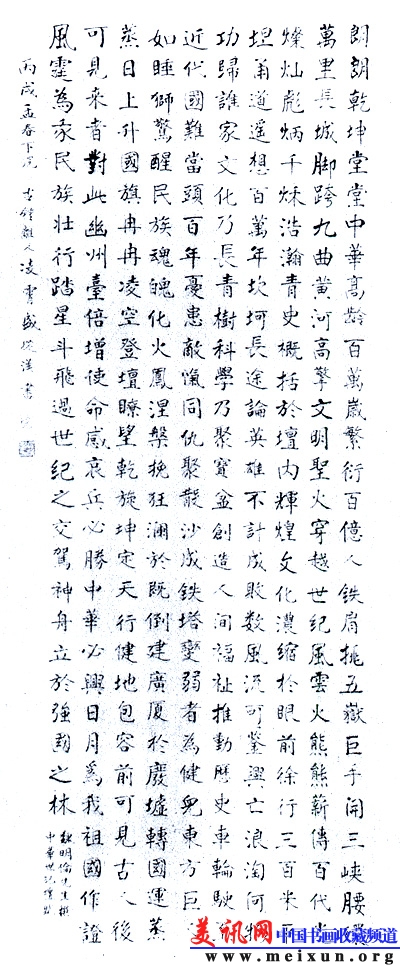 朗朗乾坤堂堂中華髙齡百萬歲繁衍百億人鉄肩挑五嶽巨手開三峽腰纏
萬里長城脚跨九曲黄河高擎文明聖火穿越世紀風雲火熊熊薪傳百代光
燦灿彪炳千秌浩瀚青史概括於壇内輝煌文化濃縮於眼前徐行三百米
埋甬道遥想百萬年坎坷長途論英雄不計成敗数風流可鑒興亡浪淘何物
功歸誰家文化乃長青樹科學乃聚寳盆創造人间福祉推動歷史車輪駛
近代國難當頭百年憂患敵愾同仇聚散沙成鉄塔變弱者為健兒東方巨
如睡獅驚醒民族魂魄化火鳳涅槃挽狂瀾於既倒建廣厦於廢墟轉國運蒸
蒸日上升國旗冉冉凌空登壇瞭望乾旋坤定天行健地包容前可見古人後
可見来者對此幽州臺倍增使命感哀兵必勝中華必興日月為我祖國作證
風雲為我民族壮行踏星斗飛過世紀之交駕神舟立於強國之林
魏明倫先生撰
中華世紀壇賦
丙戌孟春下浣 古鍾離人凌霄盛 漢書
美讯网 中国书画收藏频道
www.meixun.org